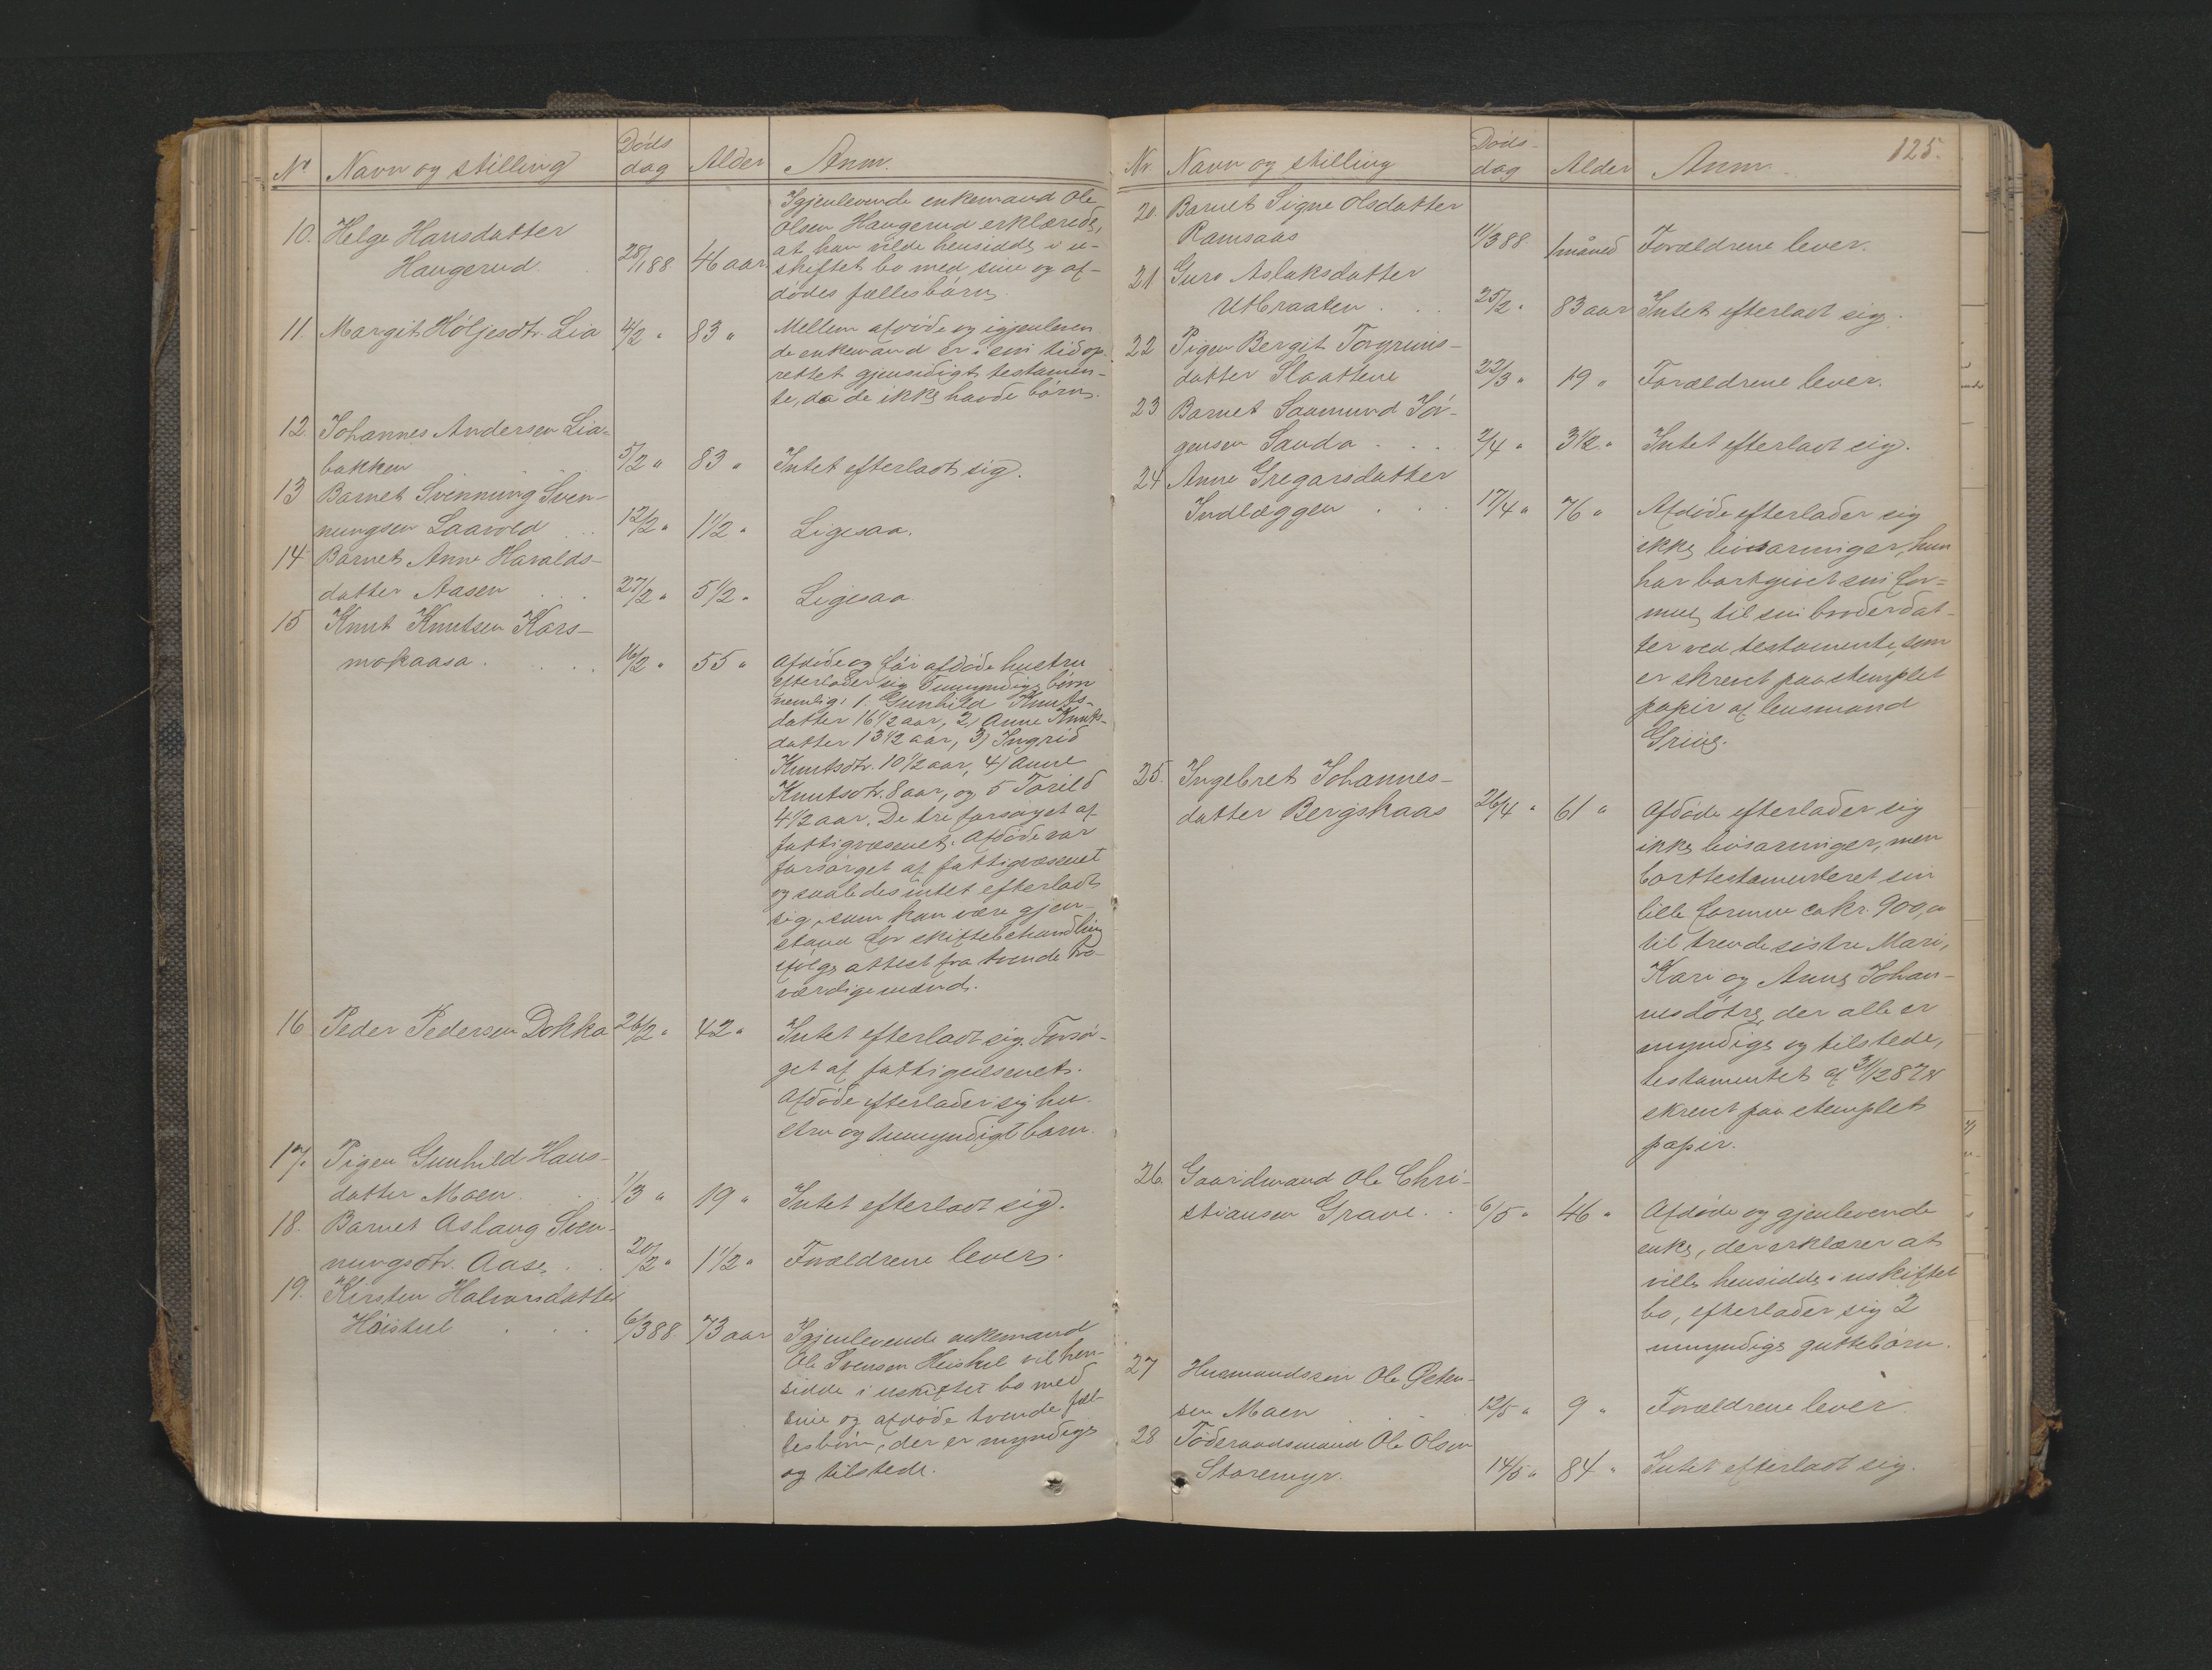 Nr Navn og stilling Døds dag Alder Anm.
10. Helge Hansdatter
Haugerud. 28/1 88 46 aar
Igjenlevende enkemand Ole
Olsen Haugerud erklærede,
at han vilde hensidde i u-
skiftet bo med sine og af-
dødes fællesbørn.
11. Margit Höljesdtr. Lia 4/2 " 83 "
Mellem afdøde og igjenleven
de enkemand er i sin tid op-
rettet gjensidigt testamen-
te, da de ikke havde børn.
12. Johannes Andersen Lia-
bakken 5/2 " 83 " Intet efterladt sig.
13 Barnet Svennung Sven-
nungsen Laavold .. 12/2 " 1 1/2 " Ligesaa.
14 Barnet Anne Haralds-
datter Aasen . . . 27/2 " 5 1/2 " Ligesaa
15 Knut Knutsen Kors-
mokaasa . . . . 16/2 " 55 "
Afdøde og før afdøde hustru
efterlader sig 5 umyndige børn
nemlig: 1. Gunhild Knuts-
datter 16 1/2 aar, 2) Anne Knuts-
datter 13 1/2 aar, 3) Ingrid
Knutsdtr. 10 1/2 aar, 4) Anne
Knutsdtr. 8 aar, og 5 Torild
4 1/2 aar. De tre forsørget af
fattigvæsenet. Afdøde var
forsørget af fattigvæsenet
og saaledes intet efterladt
sig, som kan være gjen-
stand for skiftebehandling
ifølge attest fra tvende tro-
værdige mænd.
16 Peder Pedersen Dokka 26/2 " 42 "
Intet efterladt sig. Forsør-
get af fattigvæsenet.
Afdøde efterlader sig hu-
stru og 1 umyndigt barn.
17. Pigen Gunhild Hans-
datter Moen . . 1/3 " 19 " Intet efterladt sig.
18. Barnet Aslaug Sven-
nungsdtr. Aase . . 20/2 " 1 1/2 " Forældrene lever.
19. Kirsten Halvorsdatter
Höistul . . . 6/3 88 73 aar
Igjenlevende enkemand
Ole Svensen Heistul vil hen-
sidde i uskiftet bo med
sine og afdøde tvende fæl-
lesbørn, der er myndige
og tilstede.
125.
Nr Navn og stilling Døds- dag Alder Anm.
20. Barnet Signe Olsdatter
Ramsaas 11/3 88 1 måned Forældrene lever.
21 Guro Aslaksdatter
Utbraaten . . . 25/2 " 83 aar Intet efterladt sig.
22 Pigen Bergit Torgrims-
datter Slaattene 22/3 " 19 " Forældrene lever.
23. Barnet Saamund Jør-
gensen Sauda . . . 2/4 " 3 1/2 " Intet efterladt sig.
24 Anne Gregarsdatter
Indlæggen . . . 17/4 " 76 "
Afdøde efterlader sig
ikke livsarvinger, hun
har bortgivet sin for-
mue til sin broderdat-
ter ved testamente, som
er skrevet paa stemplet
papir af lensmand
Grivi.
25. Ingebret Johannes-
datter Bergskaas 26/4 " 61 "
Afdøde efterlader sig
ikke livsarvinger, men
borttestamenteret sin
lille formue ca kr. 900,00
til trende sistre Mari,
Kari og Anne Johan-
nesdøtre, der alle er
myndige og tilstede,
testamentet af
skrevet paa stemplet
papir.
26. Gaardmand Ole Chri-
stiansen Grave . . 6/5 " 46 "
Afdøde og gjenlevende
enke, der erklærer at
ville hensidde i uskiftet
bo, efterlader sig 2
umyndige guttebørn.
27 Husmandssøn Ole
sen Moen . . 12/5 " 9 " Forældrene lever.
28 Føderaadsmand Ole Olsen
Storemyr. 14/5 " 84 " Intet efterladt sig.